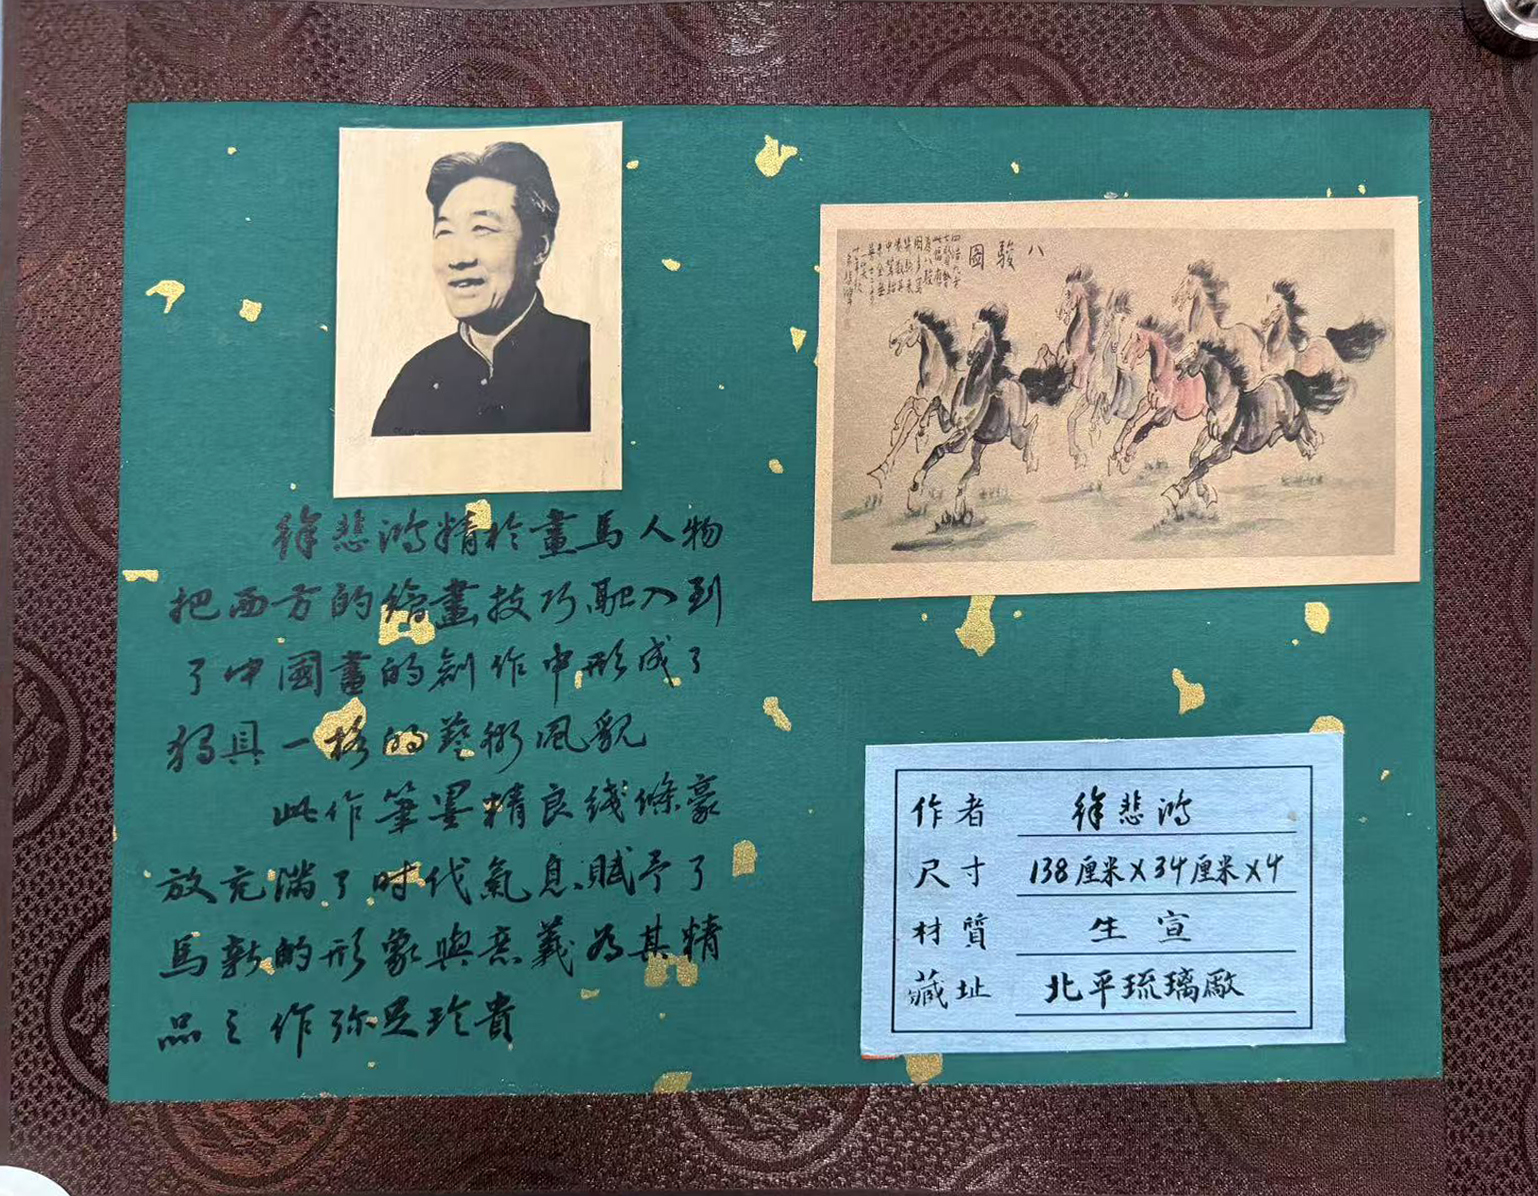 徐悲鴻精於畫馬人物
把西方的繪畫技巧融入到
了中國畫的創作中形成了
獨具一格的藝術風貌
此作筆墨精良线條豪
放充满了时代氣息賦予了
馬新的形象與意義为其精
品之作弥足珍貴
八駿圖
作者 徐悲鴻
尺寸 138厘米X34厘米X4
材質 生宣
藏址 北平琉璃廠